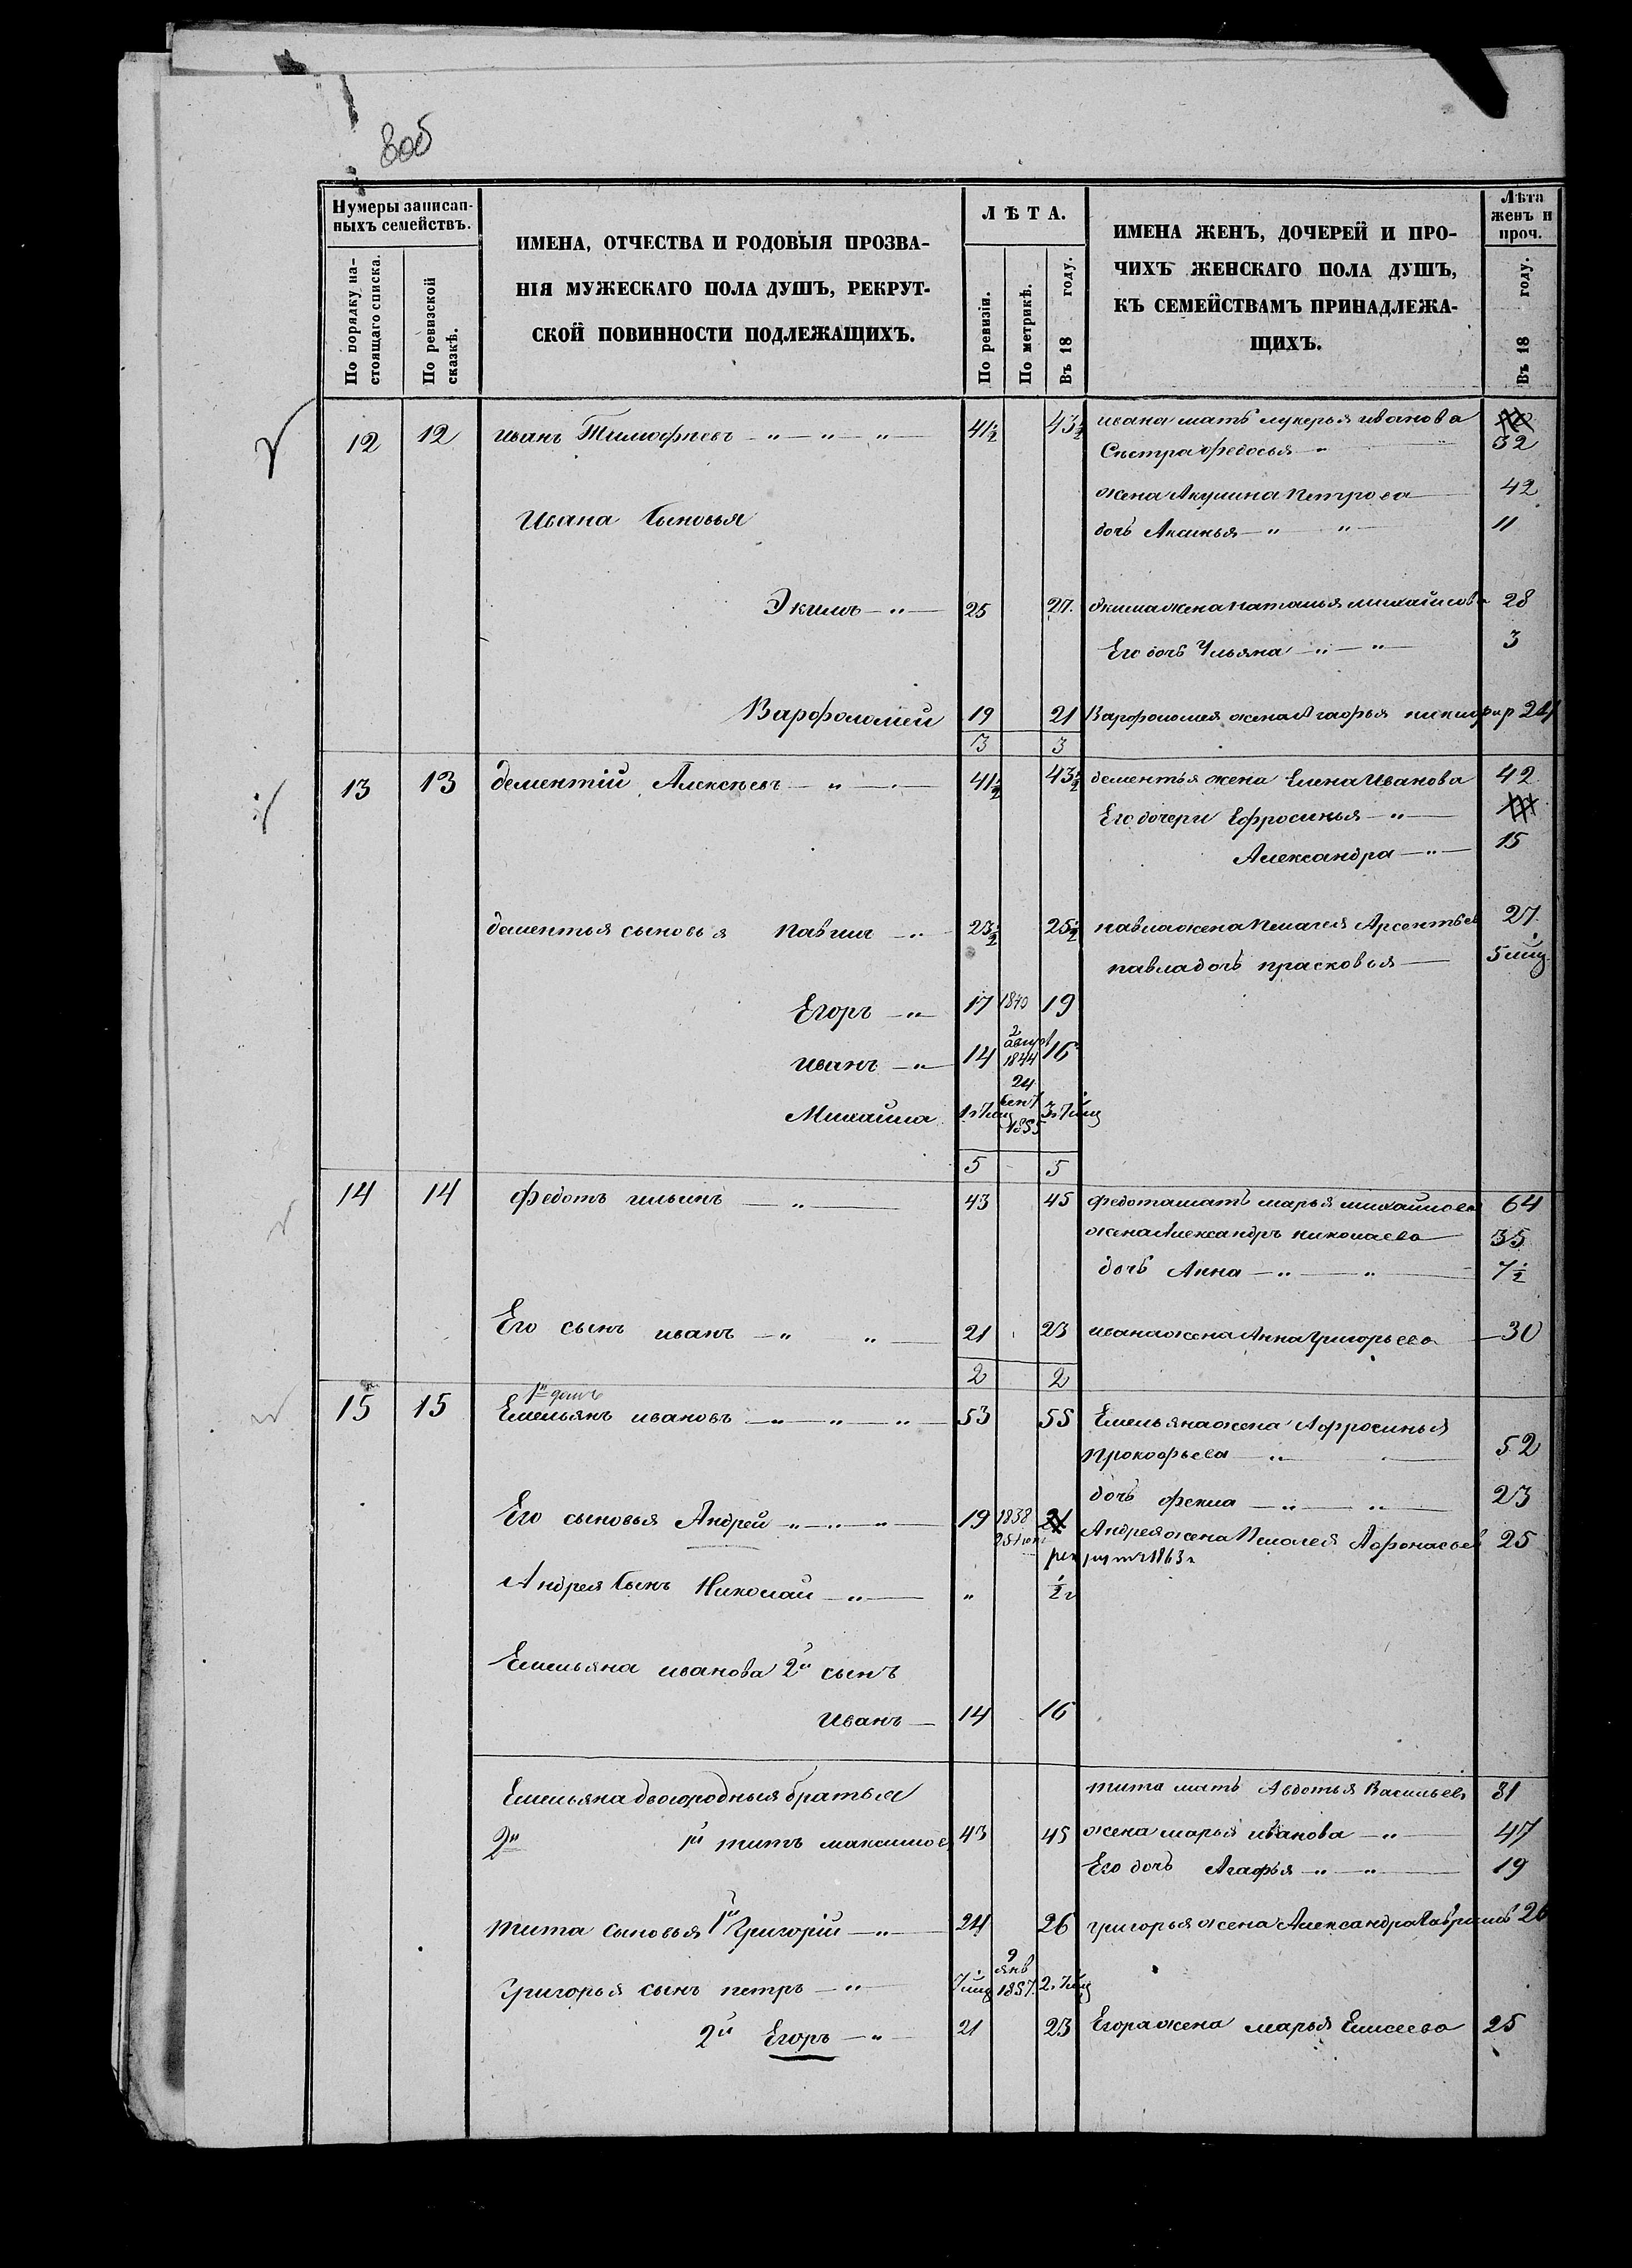 8об
Нумеры записан-
ныхъ семействъ.
По порядку на-
стоящаго списка.
По ревизской
сказкѣ.
ИМЕНА, ОТЧЕСТВА И РОДОВЫЯ ПРОЗВА-
НІЯ МУЖЕСКАГО ПОЛА ДУШЪ, РЕКРУТ-
СКОЙ ПОВИННОСТИ ПОДЛЕЖАЩИХЪ.
ЛѢТА.
По ревизіи.
По метрикѣ.
Въ 18 году.
ИМЕНА ЖЕНЪ, ДОЧЕРЕЙ И ПРО-
ЧИХЪ ЖЕНСКАГО ПОЛА ДУШЪ,
КЪ СЕМЕЙСТВАМЪ ПРИНАДЛЕЖА-
ЩИХЪ.
Лѣта
женъ и
проч.
Въ 18 году.
12 12 иванъ Тимофѣевъ — " — " — " — 41½ 43½ ивана мать лукерья иванова
Сестра федосья — " 32
жена Акулина петрова 42
Ивана Сыновья дочь Аксинья — " — " — 11
Экимъ — " — 25 27. экима жена наталья михайлова 28
Его дочь Ульяна — " — " — 3
Варфоломей 19 21 Варфоломея жена Агафья никифор 24
3 3
13 13 дементій Алексѣевъ — " — 41½ 43½ дементья жена Елена Иванова 42
Его дочери Ефросинья — " —
Александра — " — 15
дементья сыновья павилъ — " 23½ 25½ павла жена пелагея Арсентьев 27.
павла дочь прасковья — 5 мѣц
Егоръ — " — 17 1840 19
2
август
иванъ — " — 14 1844 16
24
Сент
Михаила 1 г 7 мц 1855 3 г 7 мц
5 5
14 14 федотъ ильинъ — " — 43 45 федота мать марья михайлова 64
жена Александръ николаева 35
дочь Анна — " — " — 7½
Его сынъ иванъ — " " — 21 23 ивана жена Анна григорьева — 30
2 2
15 15 1й домъ
Емельянъ ивановъ — " — " — " — 53 55 Емельяна жена Афросинья
прокофьева — " — 52
дочь фекла — " — " — 23
Его сыновья Андрей — " — " — 19 1838 21 Андрея жена пелагея Афонасьев 25
рекрутъ 1863 г
Андрея Сынъ Николай — " — " ½ г
Емельяна иванова 2й сынъ
Иванъ — 14 16
Емельяна двоюродныя братья тита мать Авдотья Васильев 81
2й 1й титъ максимов 43 45 жена марья иванова — " — 47
Его дочь Агафья — " — " — 19
тита сыновья 1й Григорій — " — 24 26 григорья жена Александра Гаврилов 26
9
янв
Григорья сынъ петръ — " — 7 мц 1857. 2 г 7 мц
2й Егоръ — " — 21 23 Егора жена марья Елисеева 25